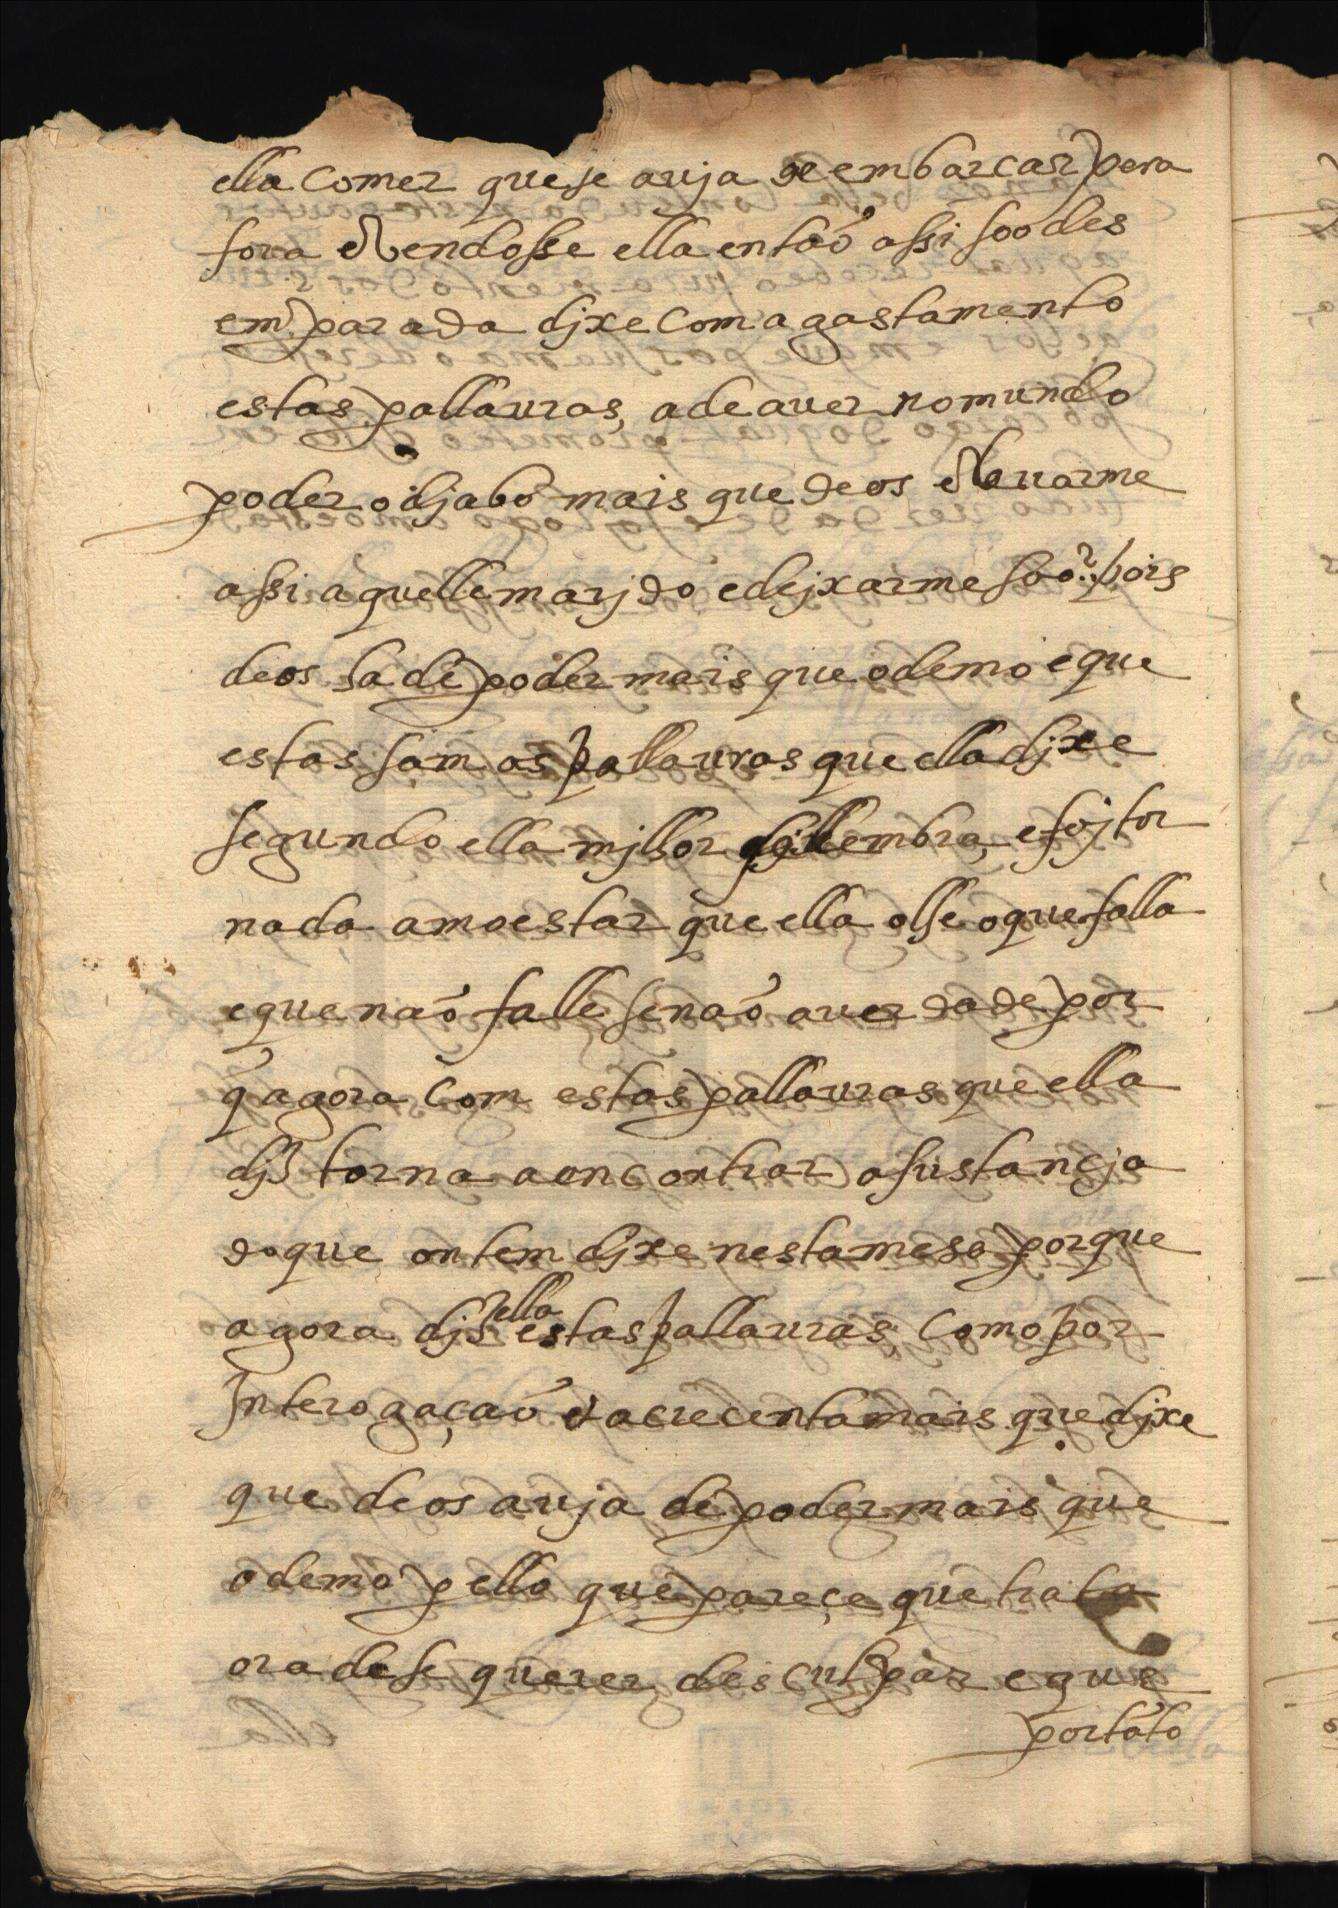 ella comer que se avja de embarcar pera
fora e vendosse ella entaõ assi soo des
emparada djxe com agastamento
estas pallavras, a de aver no mundo
poder o djabo mais que deos e levarme
assi aquelle marjdo e dejxarme soo? pois
deos ha de poder mais que o demo e que
estas sam as pallavras que ella djxe
segundo ella mjlhor lembra, e foj tor
nada amoestar que ella olhe o que falla
e que naõ falle senaõ a verdade por
q̃ agora com estas pallavras que ella
djs torna a encontrar a sustancja
do que ontem djxe nesta mesa porque
agora djs ella estas pallavras como por
Interogaçaõ e acrecenta mais que djxe
que deos avja de poder mais que
o demo pello que pareçe que trata
ora de se querer desculpar e que
portãto